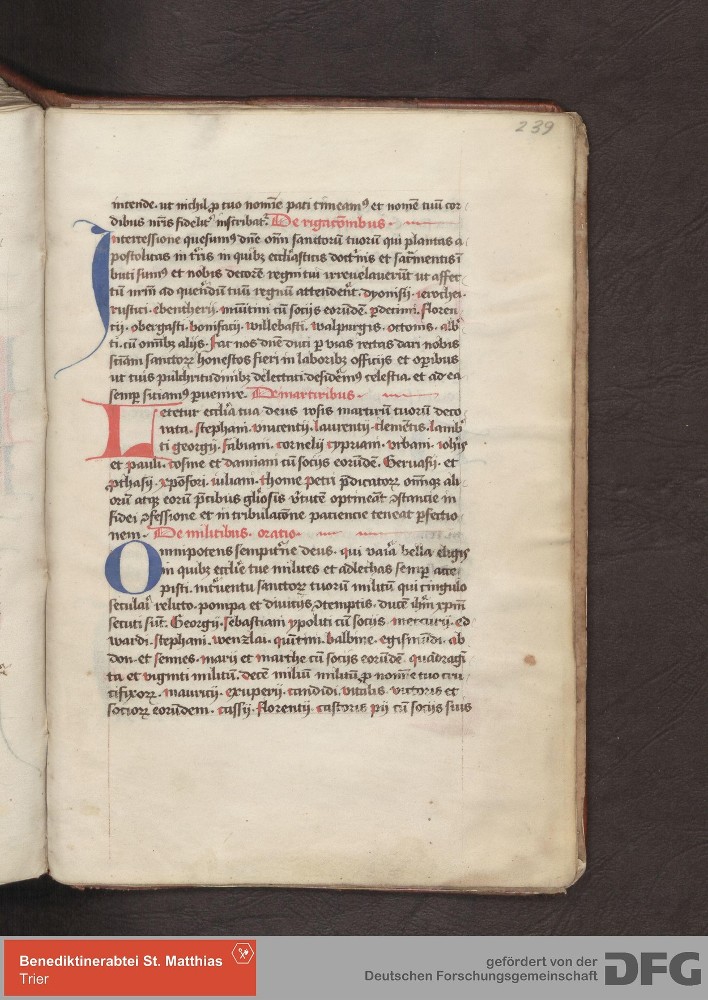 239
intende. ut nichil ꝑ tuo noīe pati timeamꝰ et nomē tuū cor
dibus nr̄is fideliꝰ inscribat᷑. De rigatōnibus.
Intercessione quesumꝰ dn̄e om̄ sanctorū tuorū qui plantas a
postolicas in tr̄is in quibꝫ eccl̄iasticis doctr̄nis et sac̄mentis ī
buti sumꝰ et nobis decorē regni tui irreuelauerūt ut affec
tū nr̄m ad querēdū tuū regnū attenderēt. dyonisij. ierothei.
rustici. ebentherij. mūūtini cū socijs eorūdē. florē
cij. obergasti. bonifacij. willebasti. walpurgis. octonis. alb̄
ti. cū om̄ibꝫ alijs. Fac nos dn̄e duci ꝑ vias rectas dari nobis
sc̄iam sanctoꝝ honestos fieri in laboribꝫ officijs et oꝑibus
ut tuis pulchritudinibꝫ delectati desiderēmꝰ celestia. et ad ea
semꝑ sitiamꝰ ꝑuenire. De martiribus.
Letetur eccl̄ia tua deus rosis martirū tuorū deco
rata. stephani. vincentij. laurentij. clemētis. lamb̄
ti georgij. fabiani. cornelij cypriani. vrbani. ioh̄is
et pauli. cosme et damiani cū socijs eorūdē. Geruasij. et
ꝓthasij. xp̄ofori. iuliani. thome petri p̄dicatoꝝ om̄iqꝫ ali
orū atqꝫ eorū p̄cibus gl̄iosis v̓tutē optineāt ꝯstancie in
fidei ꝯfessione et in tribulacōne paciencie teneat ꝑfectio
nem. De militibus. oratio.
Omnipotens sempit̓ne deus. qui vaīa bella eligis
in quibꝫ eccl̄ie tue milites et adlethas semꝑ acce
pisti. int̓uentu sanctoꝝ tuorū militū qui cingulo
seculaī relicto. pompa et diuitijs ꝯtemptis. ducē ih̄m xp̄m
secuti sūt. Georgij. sebastiani ypoliti cū socijs mercurij. ed
wardi. stephani. wenzlai. quītini. balbine. egismūdi. ab
don et sennes. marij et marthe cū socijs eorūdē. quadragī
ta et viginti militū. decē miliū militū ꝑ nomīe tuo cru
cifixoꝝ. mauricij. exuperij. candidi. vitalis. victoris et
socioꝝ eorūdem. cassij. florentij. castoris pij cū socijs suis
Benediktinerabtei St. Matthias
Trier
gefördert von der
Deutschen Forschungsgemeinschaft
DFG